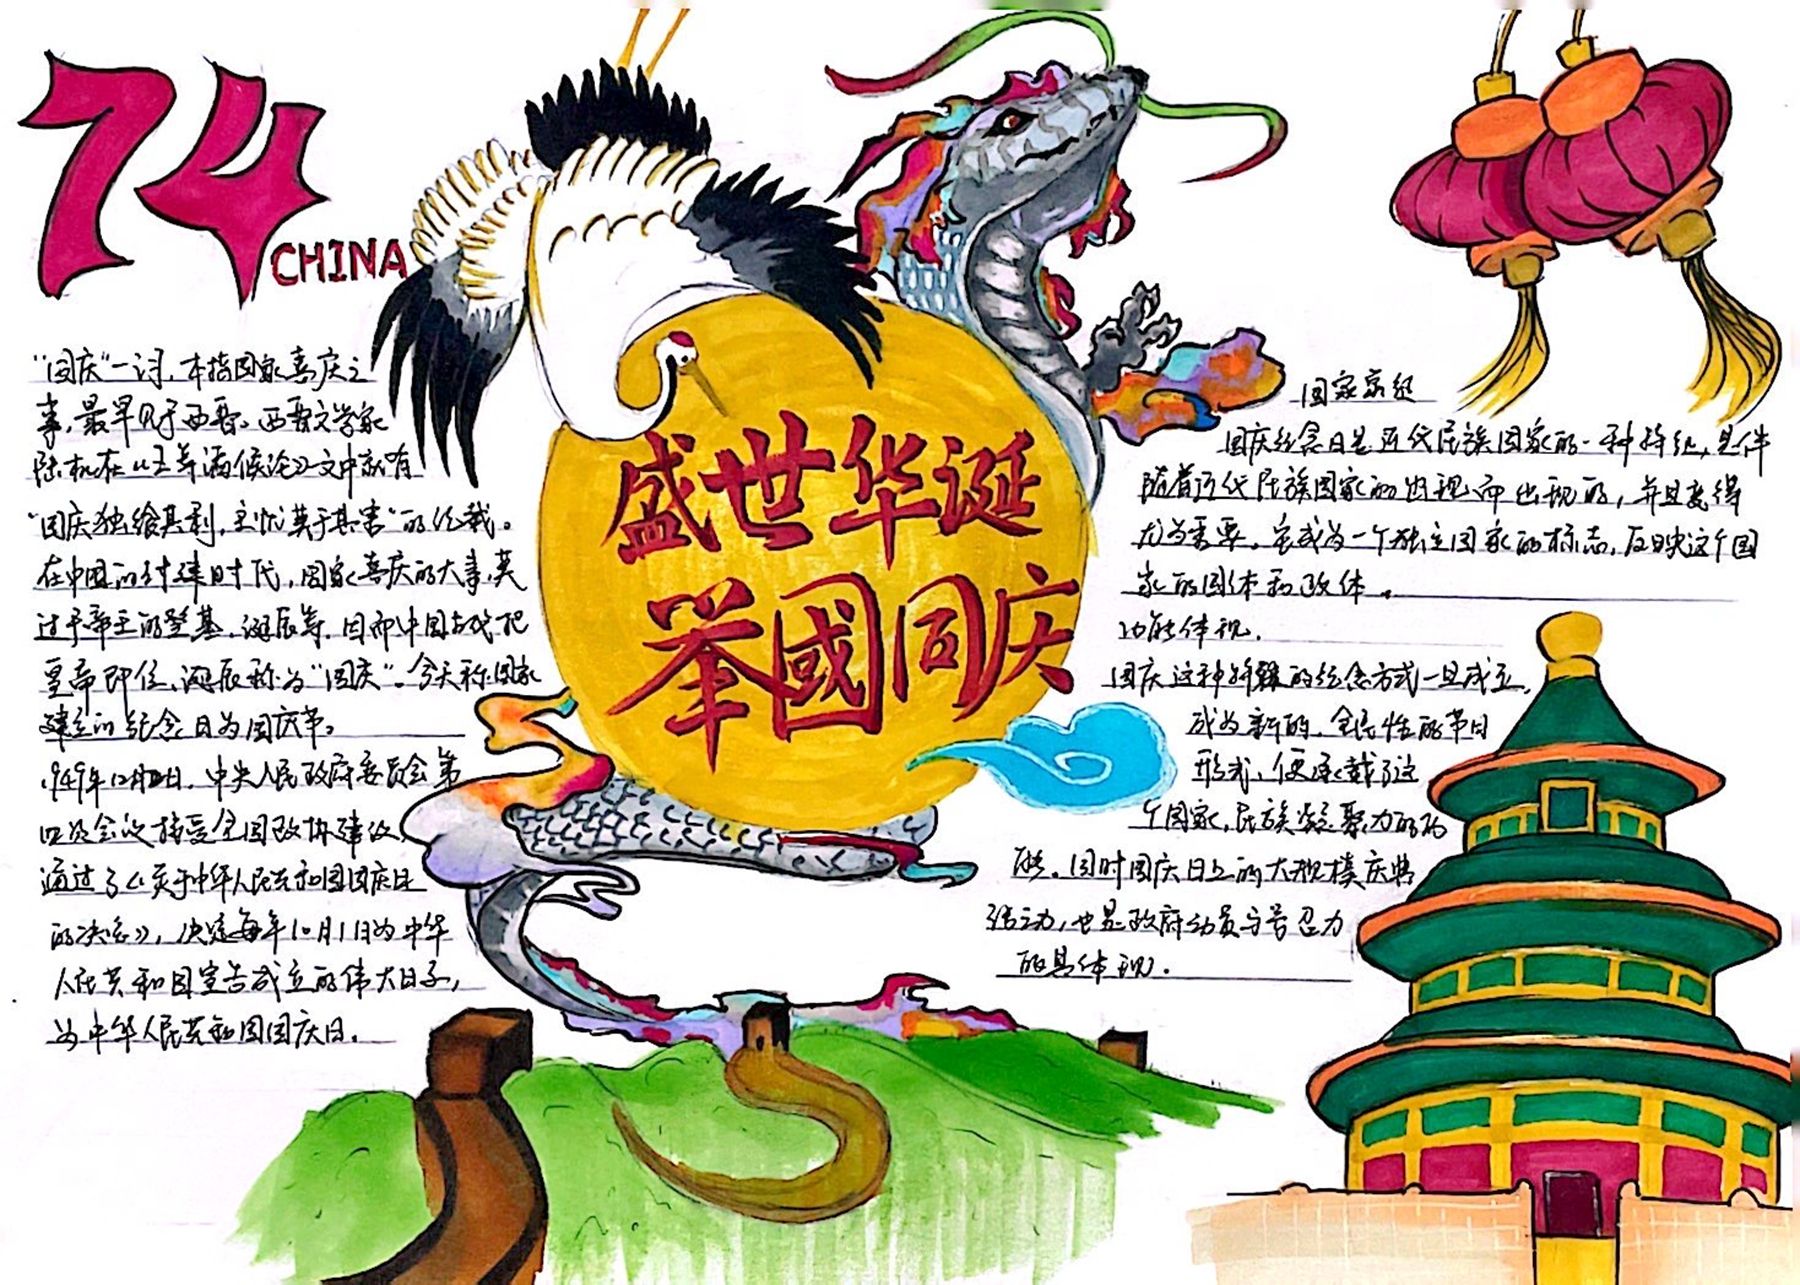 74
CHINA
盛世华诞
举國同庆
"国庆"一词,本指国家喜庆之
事,最早见于西晋。西晋文学家
陆机在《五等诸侯论》文中就有
"国庆独飨其利,主忧莫于其害"的记载。
在中国的封建时代,国家喜庆的大事,莫
过于帝王的登基、诞辰等。因而中国古代把
皇帝即位、诞辰称为"国庆"。今天称国家
建立的纪念日为国庆节。
1949年12月2日,中央人民政府委员会第
四次会议接受全国政协建议,
通过了《关于中华人民共和国国庆日
的决定》,决定每年10月1日为中华
人民共和国宣告成立的伟大日子,
为中华人民共和国国庆日。
国家象征
国庆纪念日是近代民族国家的一种特征,是伴
随着近代民族国家的出现而出现的,并且变得
尤为重要。它成为一个独立国家的标志,反映这个国
家的国体和政体。
功能体现.
国庆这种特殊的纪念方式一旦成立,
成为新的、全民性的节日
形式,便承载了这
个国家,民族凝聚力的功
能。同时国庆日上的大规模庆典
活动,也是政府动员与号召力
的具体现。